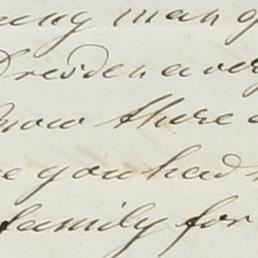 man
Dresden a very
now there
you had
family for